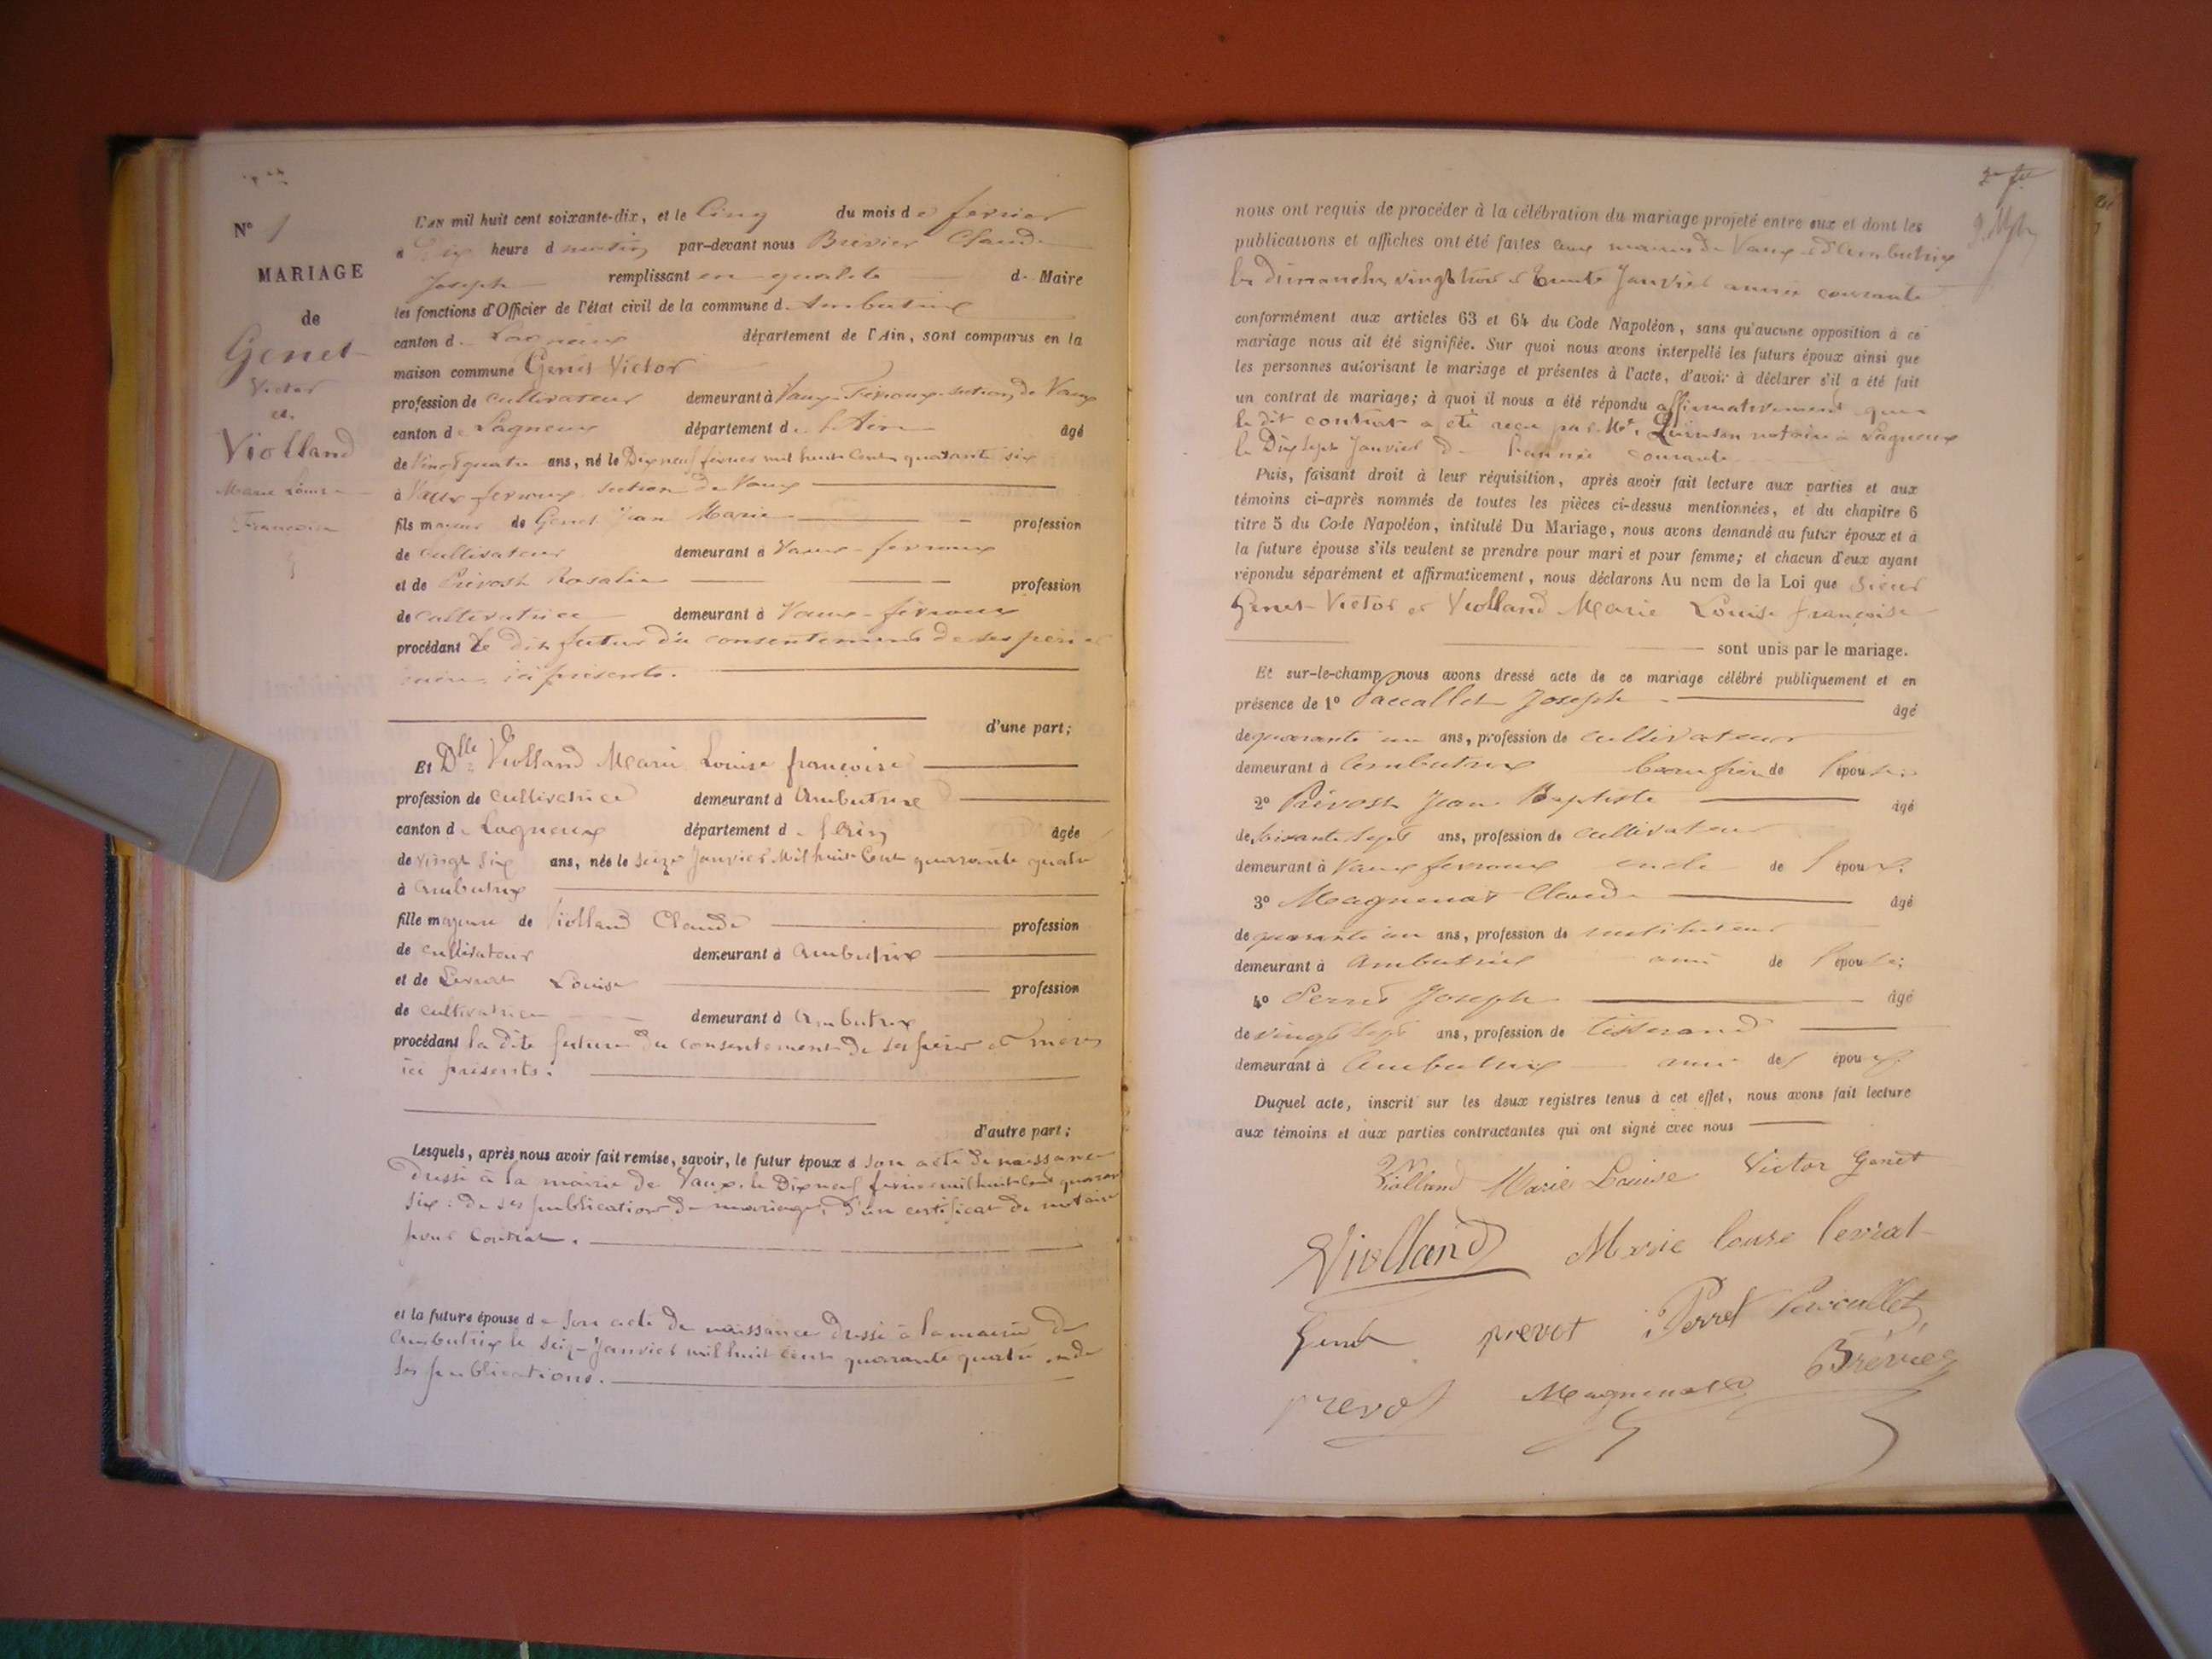 N° 1
MARIAGE
de
Genet
Victor
et
Violland
Marie Louise
Françoise
L'AN mil huit cent soixante-dix, et le Cinq du mois de février
à Dix heure d matin par-devant nous Brévier Claude
Joseph remplissant en qualité de Maire
les fonctions d'Officier de l'état civil de la commune d. Ambutrix
canton d. Lagnieux département de l'Ain, sont comparus en la
maison commune Genet Victor
profession de cultivateur demeurant à Vaux-Févroux section de Vaux
canton de Lagneux département de l'Ain âgé
de Vingt quatre ans, né le Dix neuf février mil huit Cent quarante six
à Vaux-fevroux section de Vaux
fils majeur de Genet Jean Marie profession
de cultivateur demeurant à Vaux-fevroux
et de Prévost Rosalie profession
de cultivatrice demeurant à Vaux-févroux
procédant Le dit futur du consentement de ses père et
mère, ici présents.
d'une part;
Et Dlle Violland Marie Louise françoise
profession de cultivatrice demeurant à Ambutrix
canton de Lagneux département de l'Ain âgée
de vingt six ans, née le seize Janvier Mil huit Cent quarante quatre
à Ambutrix
fille majeure de Violland Claude profession
de cultivateur demeurant à Ambutrix
et de Levrat Louise profession
de cultivatrice demeurant à Ambutrix
procédant la dite future du consentement de ses père et mère
ici présents.
d'autre part;
Lesquels, après nous avoir fait remise, savoir, le futur époux d son acte de naissance
dressé à la mairie de Vaux, le Dix neuf février mil huit Cent quarante
six: de ses publications de mariage, d'un certificat de notaire
pour Contrat.
et la future épouse de son acte de naissance dressé à la mairie de
Ambutrix le seize Janvier mil huit Cent quarante quatre et de
ses publications.
2e ft
nous ont requis de procéder à la célébration du mariage projeté entre eux et dont les
publications et affiches ont été faites aux mairies de Vaux et d'Ambutrix
les dimanches vingt trois et trente Janvier année courante
conformément aux articles 63 et 64 du Code Napoléon, sans qu'aucune opposition à ce
mariage nous ait été signifiée. Sur quoi nous avons interpellé les futurs époux ainsi que
les personnes autorisant le mariage et présentes à l'acte, d'avoir à déclarer s'il a été fait
un contrat de mariage; à quoi il nous a été répondu affirmativement que
le dit contrat a été reçu par Me notaire à Lagneux
le Dix sept Janvier de l'année courante
Puis, faisant droit à leur réquisition, après avoir fait lecture aux parties et aux
témoins ci-après nommés de toutes les pièces ci-dessus mentionnées, et du chapitre 6
titre 5 du Code Napoléon, intitulé Du Mariage, nous avons demandé au futur époux et à
la future épouse s'ils veulent se prendre pour mari et pour femme; et chacun d'eux ayant
répondu séparément et affirmativement, nous déclarons Au nom de la Loi que sieur
Genet Victor et Violland Marie Louise françoise
sont unis par le mariage.
Et sur-le-champ nous avons dressé acte de ce mariage célébré publiquement et en
présence de 1° Paccallet Joseph âgé
de quarante un ans, profession de cultivateur
demeurant à Ambutrix beau frère de l'épouse;
2° Prévost Jean Baptiste âgé
de soixante sept ans, profession de cultivateur
demeurant à Vaux fevroux oncle de l'époux.
3° Magnenat Claude âgé
de quarante un ans, profession de instituteur
demeurant à Ambutrix ami de l'épouse;
4° Perret Joseph âgé
de vingt sept ans, profession de tisserand
demeurant à Ambutrix ami des époux.
Duquel acte, inscrit sur les deux registres tenus à cet effet, nous avons fait lecture
aux témoins et aux parties contractantes qui ont signé avec nous
Violland Marie Louise Victor Genet
Violland Marie louise levrat
Genet prevot Perret Paccallet
prevot Magnenat Brévier